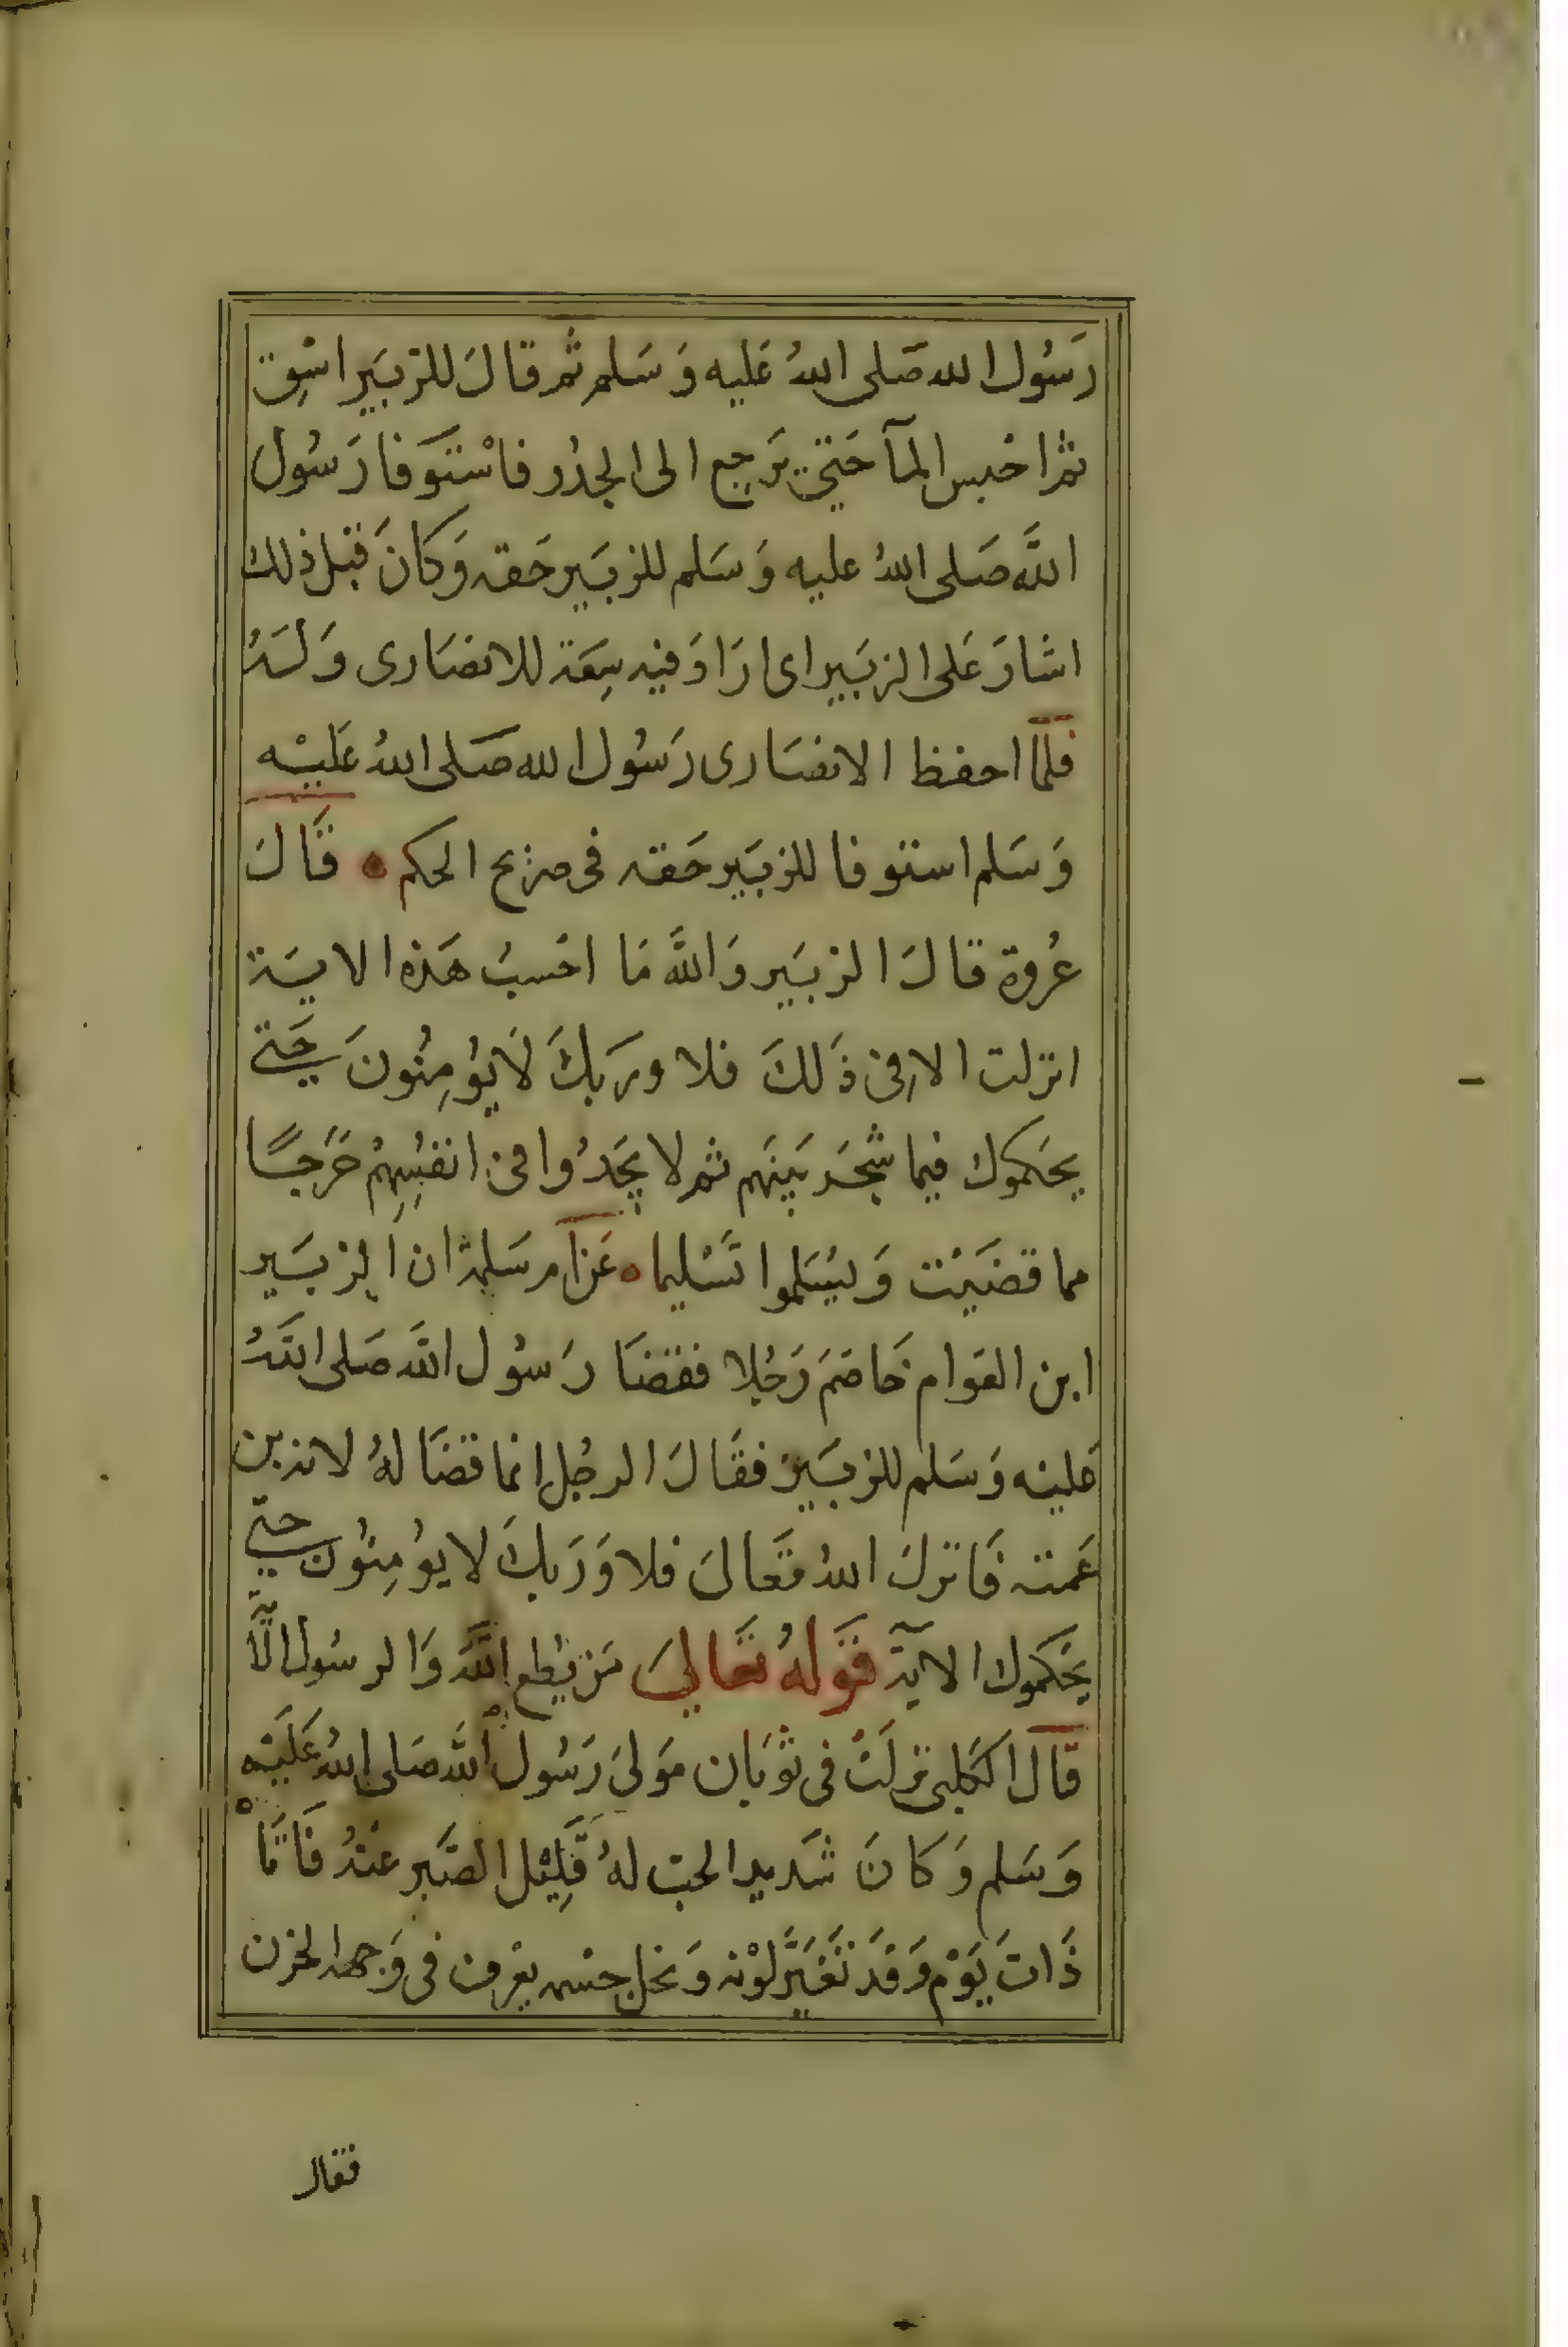 رَسُول الله صَلى اللهُ عَليه وَسَلم ثم قالَ للزبَير اسْق
ثم احبس المآ حَتى يَرجع الى الجدُر فاسْتَوفا رَسُول
اللَّه صَلى اللهُ عليه وَسَلم للزبَير حَقه وَكانَ قبل ذلك
اشارَ عَلى الزبَير اى ارَادَ فيه سِعَة للانصَارى وَلَهُ
فلمَّا احفظ الانصَارى رَسُول الله صَلى اللهُ عَليْه
وَسَلم استوفا للزبَير حَقه فى صريح الحكم ٥ قَالَ
عُروة قالَ الزبَير وَاللَّه مَا احْسبُ هَذه الايَة
انزلت الا فى ذَلكَ فلا وربكَ لَا يُؤمِنُونَ حَتى
يحَكموك فيما شَجَر بَينَهم ثم لا يَجدُوا فى انفُسِهِمْ حَرَجًا
مما قضَيْت وَيُسَلموا تَسْليما ٥ عَن ام سَلمة ان الزبَير
ابن العَوام خَاصَمَ رَجُلا فقضَا رَسُول اللَّه صَلى اللَّهُ
عَليْه وَسَلم للزبَير فقَالَ الرجُل انما قضَا لهُ لانه بن
عَمته فَانزلَ اللهُ تعَالىَ فلا وَرَبكَ لا يُؤمِنُونَ حَتى
يحَكموك الايَة قَولهُ تَعَالىَ مَن يُطع اللَّهَ وَالرسُول الآية
قالَ الكَلبى نزلَتْ فى ثوبَان مَولىَ رَسُول اللَّه صَلى اللهُ عَلَيْه
وَسَلم وَكانَ شَديد الحب لهُ قَلِيْل الصَبر عَنْهُ فَاتَاْه
ذَاتَ يَوْم وَقدَ تَغَيَّر لَوْنه وَنحل جسْمه يعْرف فى وَجهه الحزن
فقال